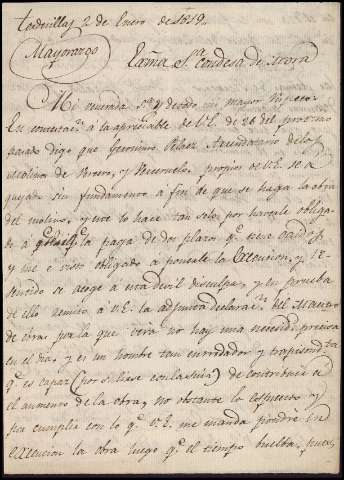 Tordesillas 2 de Enero de 1819,
Mayorazgo
Exma S.ra Condesa de Mora
Mi venerada S.ra y de todo mi mayor respeto:
En contestac.n á la apreciable de V.E. de 26 del proximo
pasado digo que Geronimo Pelaez Arrendatario de los
Molinos de y propios de V.E. se a
quejado sin fundamento a fin de que se haga la obra
del molino, y esto lo hace tan solo por haverle obliga-
do á la paga de dos plazos q.e tiene vencidos
y me é visto obligado a ponerle la Execucion, y te-
miendo se acoge á esta devil disculpa, y en prueba
de ello remito á V.E. la adjunta declarac.n del Maestro
de obras, por la que verá no hay una necesid.d precisa
en el dia, y es un hombre tan enredador y trapisondista
q.e es capaz (por si llebe con la suia) de contribuir a
el aumento de la obra, no obstante lo espuesto, y
p.a cumplir con lo q.e V.E. me manda pondré en
execucion la obra luego q.e el tiempo buelba, pues